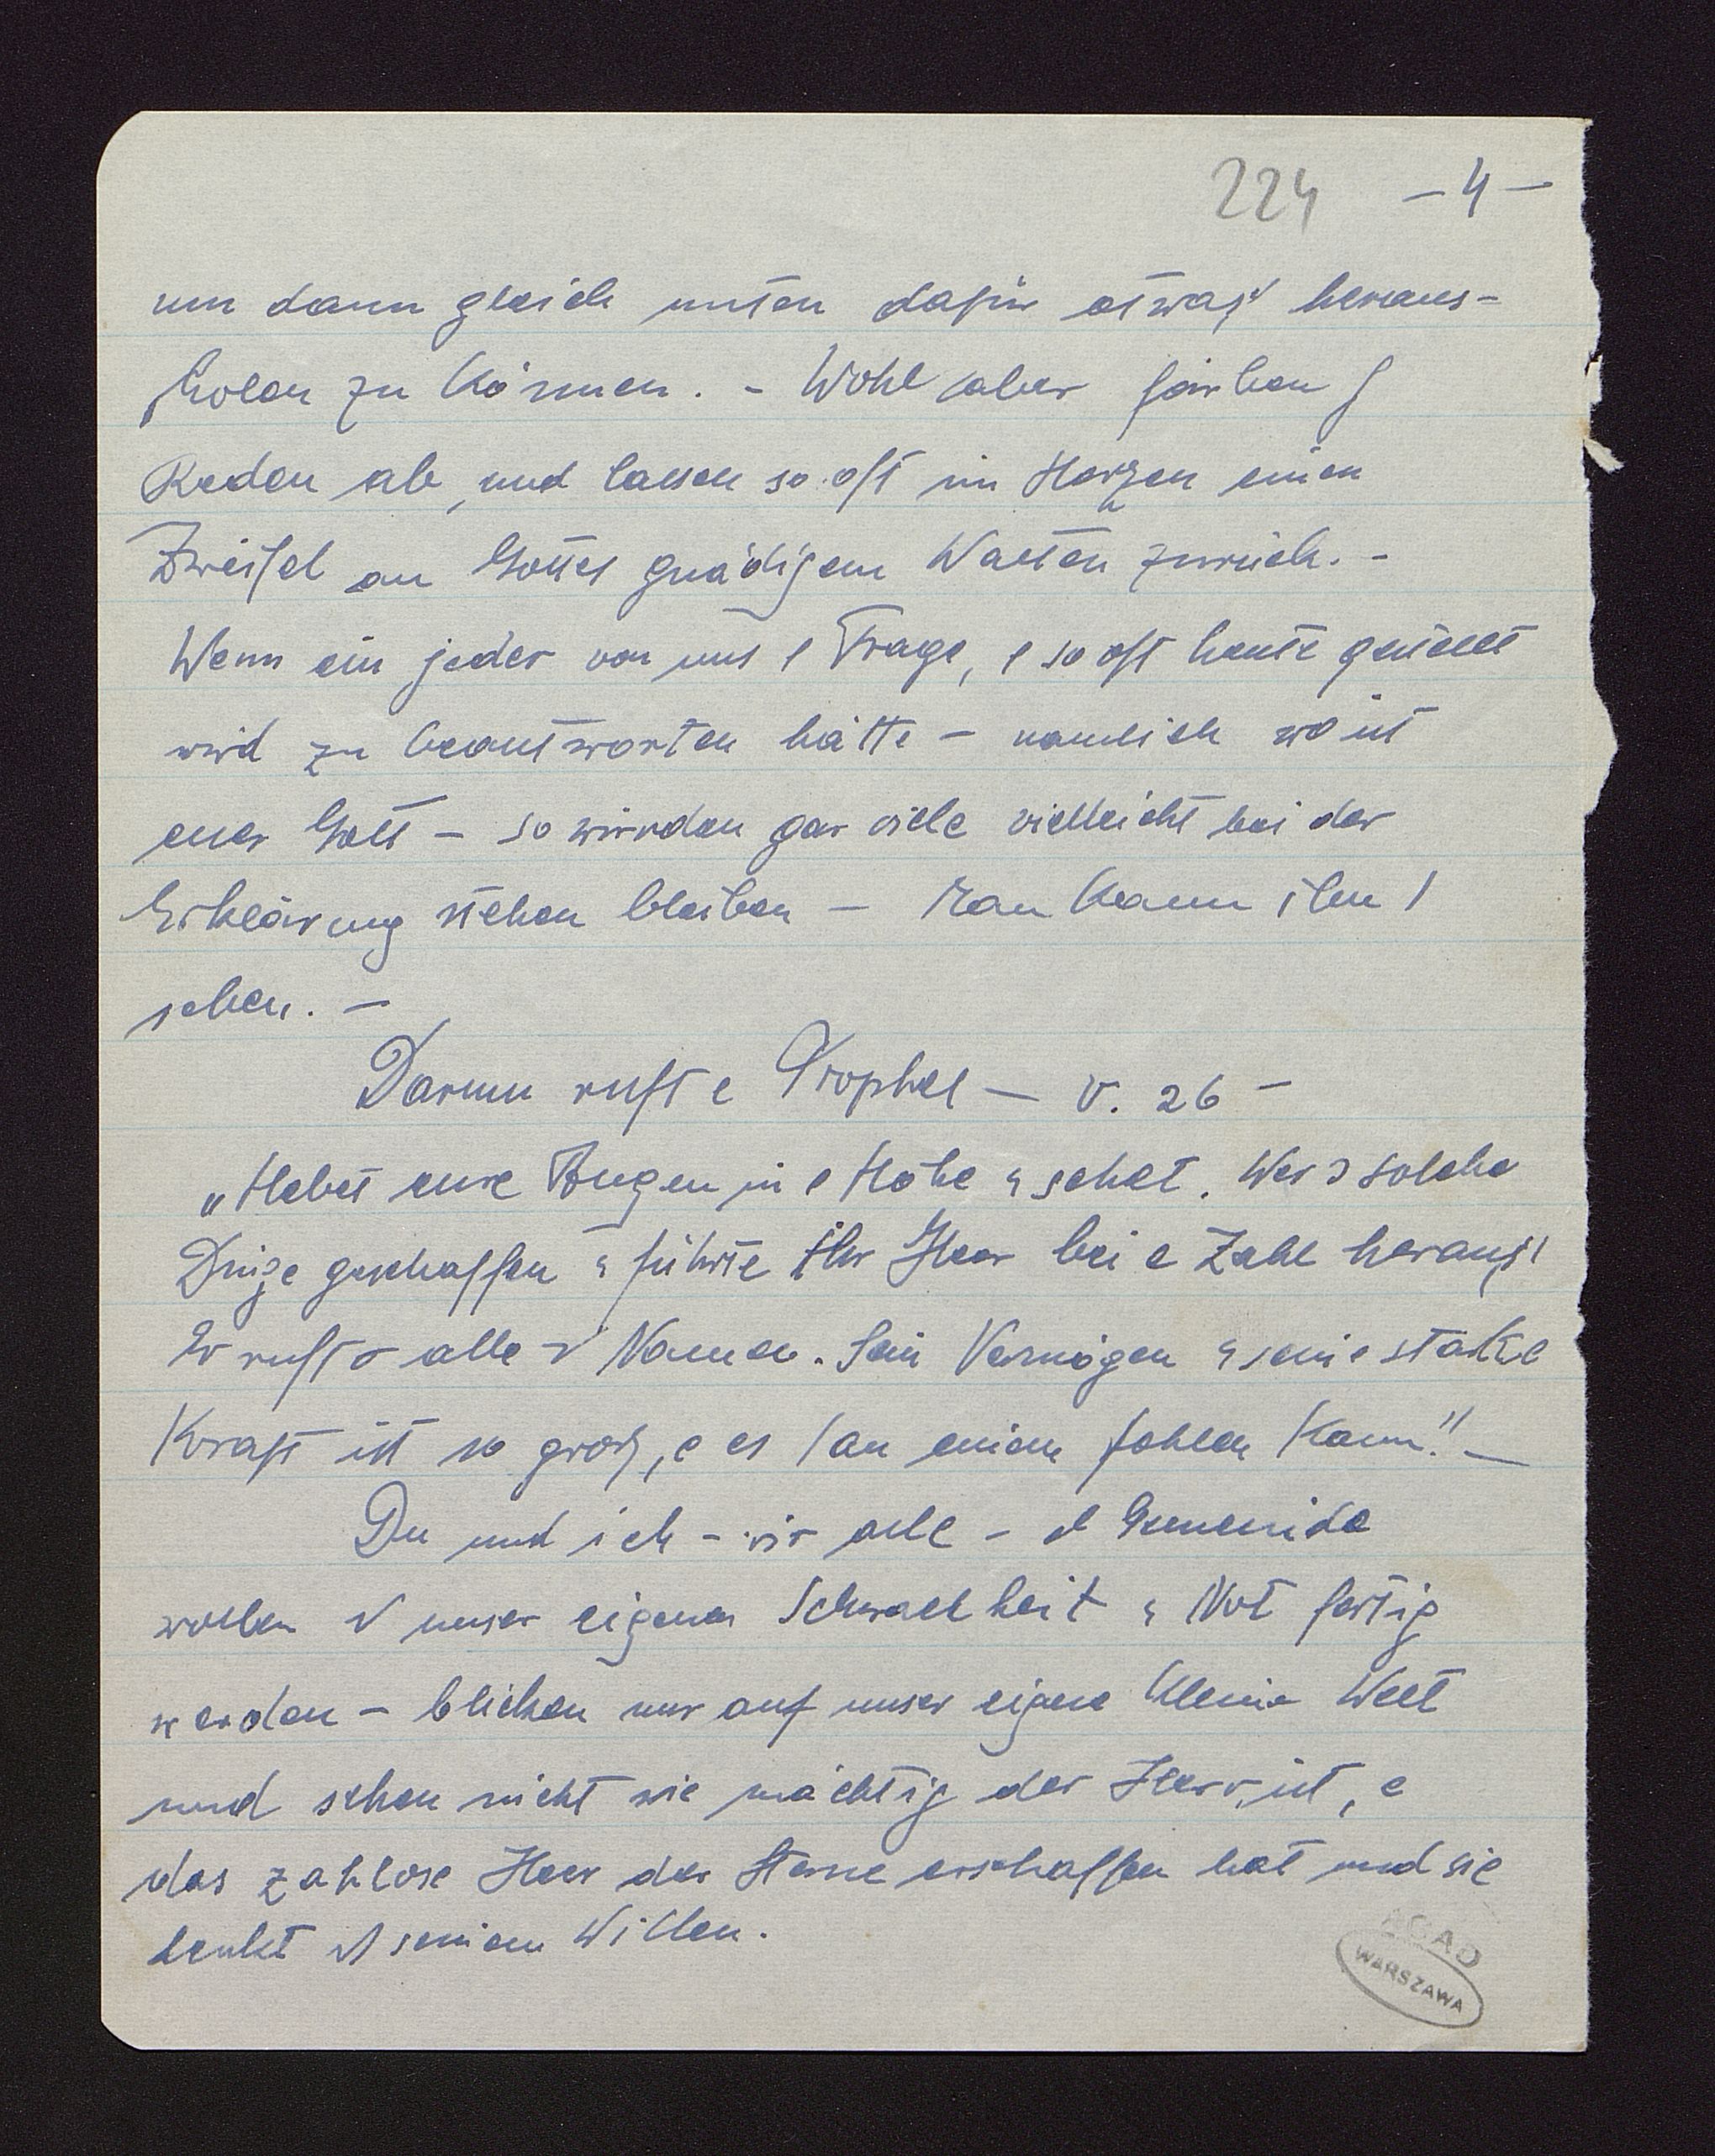 224 - 4 -
um dann gleich unten dafür etwas heraus-
holen zu können. - Wohl aber färben
Reden ab, und lassen so oft im Herzen einen
Zweifel an Gottes gnädigem Walten zurück. -
Wenn ein jeder von uns e Frage, e so oft heute gestellt
wird zu beantworten hätte - namlich wo ist
euer Gott - so würden gar viele vielleicht bei der
Erklärung stehen bleiben - Man kann ihn /
sehen. -
Darum ruft e Prophet - V. 26 -
„Hebet eure Augen in e Höhe & sehet. Wer solche
Dinge geschaffen & führte ihr Heer bei e Zahl heraus!
Er ruft alle Namen. Sein Vermögen & seine starke
Kraft ist so groß, e es / an einem fehlen kann!" -
Du und ich - wir alle - d Gemeinde
wollen unser eigenen Schwachheit & Not fertig
werden - blicken nur auf unser eigene kleine Welt
und sehen nicht wie mächtig der Herr ist, e
das zahlose Heer der Sterne erschaffen hat und sie
lenkt seinem Willen.
AGAD
WARSZAWA